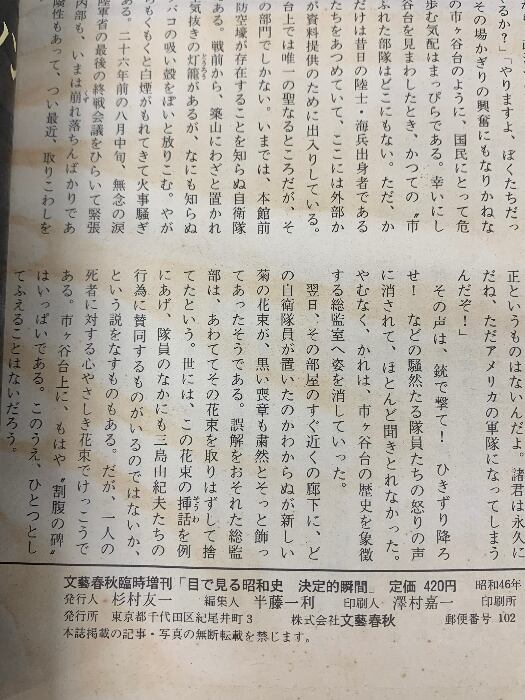 るか？」「やりますよ、ぼくたちだっ
その場かぎりの興奮にもなりかねな
の市ヶ谷台のように、国民にとって危
歩む気配はまっぴらである。幸いにし
谷台を見まわしたとき、かつての〝市
ふれた部隊はどこにもない。ただ、か
だけは昔日の陸士・海兵出身者である
たちをあつめていて、ここには外部か
が資料提供のために出入りしている。
台上では唯一の聖なるところだが、そ
の部門でしかない。いまでは、本館前
防空壕が存在することを知らぬ自衛隊
ある。戦前から、築山にわざと置かれ
気抜きの灯籠があるが、なにも知らぬ
バコの吸い殻をぽいと放りこむ。やが
らもくもくと白煙がもれてきて火事騒ぎ
ある。二十六年前の八月中旬、無念の涙
陸軍省の最後の終戦会議をひらいて緊張
内部も、いまは崩れ落ちんばかりであ
険性もあって、つい最近、取りこわしを
正というものはないんだよ。諸君は永久に
だね、ただアメリカの軍隊になってしまう
んだぞ！」
その声は、銃で撃て！　ひきずり降ろ
せ！　などの騒然たる隊員たちの怒りの声
に消されて、ほとんど聞きとれなかった。
やむなく、かれは、市ヶ谷台の歴史を象徴
する総監室へ姿を消していった。
翌日、その部屋のすぐ近くの廊下に、ど
の自衛隊員が置いたのかわからぬが新しい
菊の花束が、黒い喪章も粛然とそっと飾っ
てあったそうである。誤解をおそれた総監
部は、あわててその花束を取りはずして捨
てたという。世には、この花束の挿話を例
にあげ、隊員のなかにも三島由紀夫たちの
行為に賛同するものがいるのではないか、
という説をなすものもある。だが、一人の
死者に対する心やさしき花束でけっこうで
ある。市ヶ谷台上に、もはや〝割腹の碑〟
はいっぱいである。このうえ、ひとつとし
てふえることはないだろう。
文藝春秋臨時増刊「目で見る昭和史　決定的瞬間」　定価 420円　昭和46年
発行人　杉村友一　編集人　半藤一利　印刷人　澤村嘉一　印刷所
発行所　東京都千代田区紀尾井町3　株式会社 文藝春秋　郵便番号 102
本誌掲載の記事・写真の無断転載を禁じます。